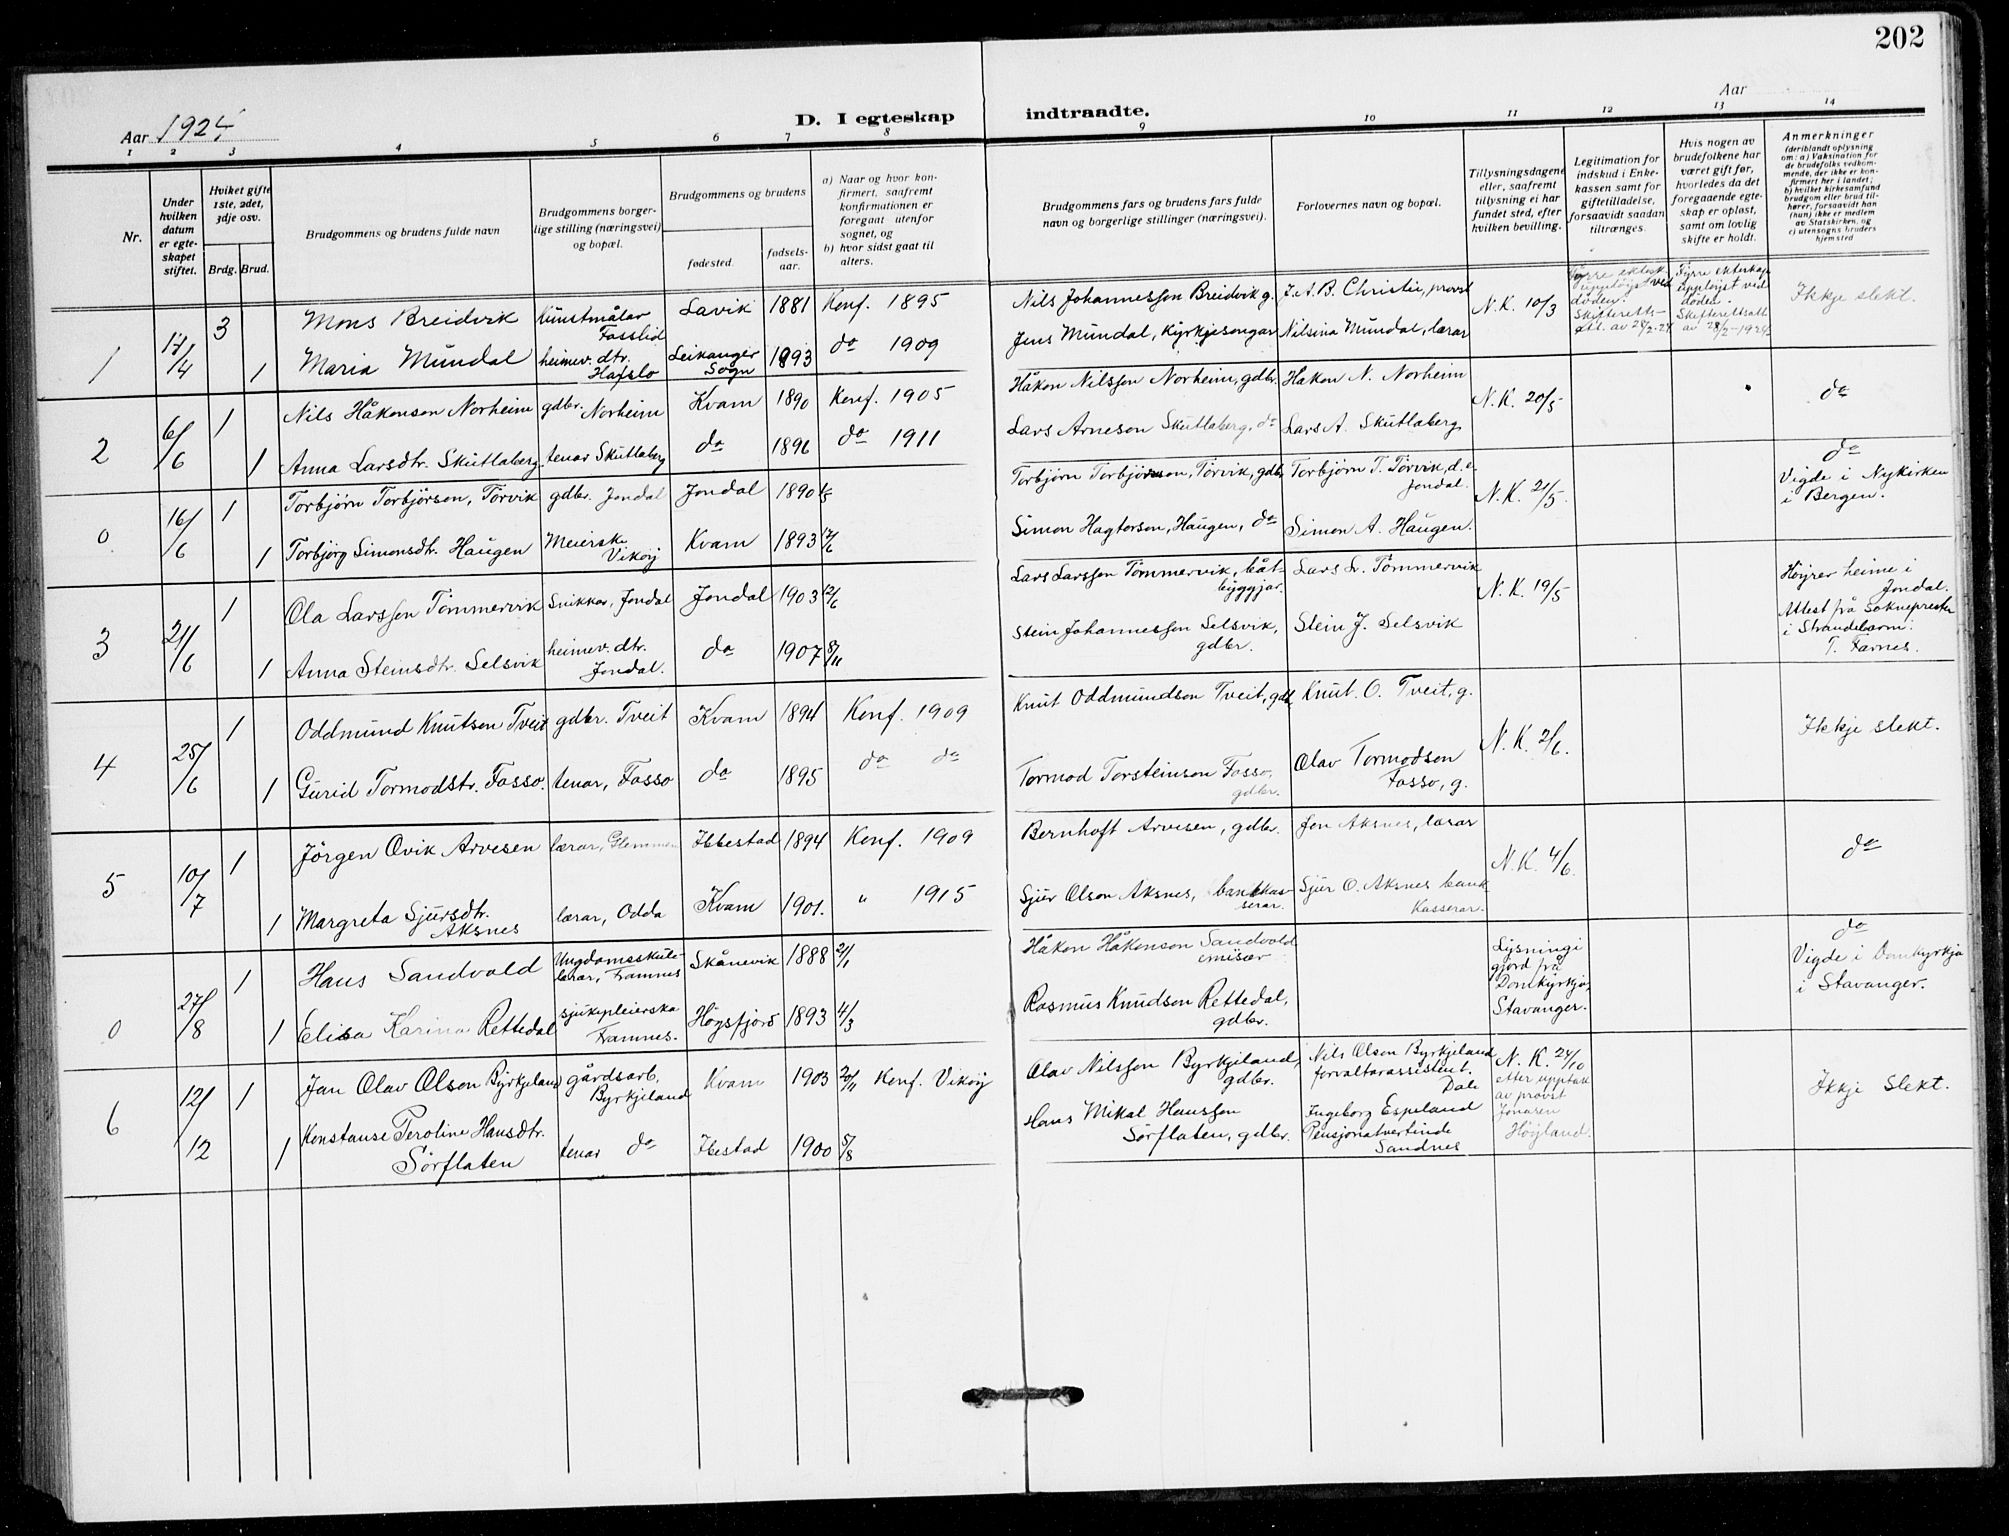 202
Aar 1924
D. I egteskap indtraadte.
Aar
1 2 3 4 5 6 7 8 9 10 11 12 13 14
Nr.
Under hvilken datum er egteskapet stiftet.
Hviket gifte 1ste, 2det, 3dje osv.
Brdg. Brud.
Brudgommens og brudens fulde navn
Brudgommens borgerlige stilling (næringsvei) og bopæl.
Brudgommens og brudens
fødested.
fødselsaar.
a) Naar og hvor konfirmert, saafremt konfirmationen er foregaat utenfor sognet, og
b) hvor sidst gaat til alters.
Brudgommens fars og brudens fars fulde navn og borgerlige stillinger (næringsvei).
Forlovernes navn og bopæl.
Tillysningsdagene eller, saafremt tillysning ei har fundet sted, efter hvilken bevilling.
Legitimation for indskud i Enkekassen samt for giftetilladelse, forsaavidt saadan tiltrænges.
Hvis nogen av brudefolkene har været gift før, hvorledes da det foregaaende egteskap er opløst, samt om lovlig skifte er holdt.
Anmerkninger
(deriblandt oplysning om: a) Vaksination for de brudefolks vedkommende, der ikke er konfirmert her i landet; b) hvilket kirkesamfund brudgom eller brud tilhører, forsaavidt han (hun) ikke er medlem av Statskirken, og c) utensogns bruders hjemsted
1 17/4 3 Mons Breidvik Kunstmålar Fosslid Lavik 1881 Konf. 1895 Nils Johannesson Breidvik g. J. A. B. Christie, provst N. K. 10/3 Fyrre ektesk. uppløyst ved døden. Skifteretts- att. av 28/2-24 Fyrre ekteskap uppløyst ved døden. Skifterettsatt. av 28/2-1924 Ikkje slekt.
1 Maria Mundal heimev. dtr. Hafslo Leikanger Sogn 1893 do 1909 Jens Mundal, Kyrkjesongar Nilsina Mundal, lærar
2 6/6 1 Nils Håkonson Norheim gdbr. Norheim Kvam 1890 Konf. 1905 Håkon Nilsson Norheim, gdbr. Hakon N. Norheim N. K. 20/5 do
1 Anna Larsdtr. Skutlaberg tenar Skutlaberg do 1896 do 1911 Lars Arneson Skutlaberg, do Lars A. Skutlaberg
0 16/6 1 Torbjørn Torbjørson, Tørvik gdbr. Jondal Jondal 1890 Torbjørn Torbjørnson, Tørvik, gdbr. Torbjørn T. Tørvik, d. e. Jondal. N. K. 21/5. do Vigde i Nykirken i Bergen.
1 Torbjørg Simonsdtr. Haugen Meierske Vikøy Kvam 1893 12/6 Simon Hagtorson, Haugen, do Simon A. Haugen.
3 21/6 1 Ola Larsson Tømmervik Snikkar, Jondal Jondal 1903 12/6 Lars Larsson Tømmervik, båtbyggjar. Lars L. Tømmervik N. K. 19/5 Høyrer heime i Jondal. Attest frå sokneprester i Strandebarm: T. Farnes.
1 Anna Steinsdtr. Selsvik heimev. dtr. Jondal. do 1907 8/11 Stein Johannesson Selsvik, gdbr. Stein J. Selsvik
4 25/6 1 Oddmund Knutson Tveit gdbr. Tveit Kvam 1894 Konf. 1909 Knut Oddmundson Tveit, gdbr Knut O. Tveit, g. N. K. 2/6. Ikkje slekt.
1 Gurid Tormodstr. Fosso. tenar, Fosso do 1895 do do Tormod Torsteinson Fosso, gdbr. Olav Tormodson Fosso, g.
5 10/7 1 Jørgen Ovik Arvesen lærar, Glemmen Ibbestad 1894 Konf. 1909 Bernhoft Arvesen, gdbr. Jon Aksnes, lærar N. K. 4/6. do
1 Margreta Sjursdtr. Aksnes lærar, Odda Kvam 1901. " 1915 Sjur Olson Aksnes, bankkasserar. Sjur O. Aksnes bank Kasserar.
0 27/8 1 Hans Sandvold Ungdomsskulelærar, Framnes Skånevik 1888 21/1 Håkon Håkonson Sandvold emisær Lysningi gjord frå Domkyrkja, Stavanger. do Vigde i Domkyrkja i Stavanger.
1 Elisa Karina Rettedal sjukepleierska Framnes. Høgsfjord 1893 4/3 Rasmus Knudson Rettedal, gdbr.
6 12/12 1 Jan Olav Olson Byrkjeland gårdsarb. Byrkjeland Kvam 1903 20/11 Konf. Vikøy Olav Nilsson Byrkjeland, gdbr. Nils Olson Byrkjeland forvaltarassistent. Dale N. K. 24/10 etter upptak av provst Jonasen Høyland. Ikkje slekt.
1 Konstanse Peroline Hansdtr. Sørflaten tenar do Ibestad 1900 5/8 Hans Mikal Hansson Sørflaten, gdbr. Ingeborg Espeland Pensjonatvertinde Sandnes